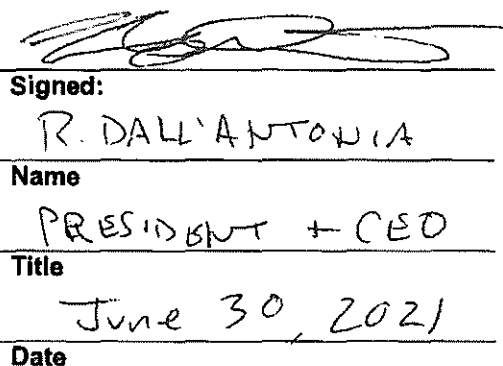 Signed:
R. DALL'ANTONIA
Name
PRESIDENT + CEO
Title
June 30, 2021
Date